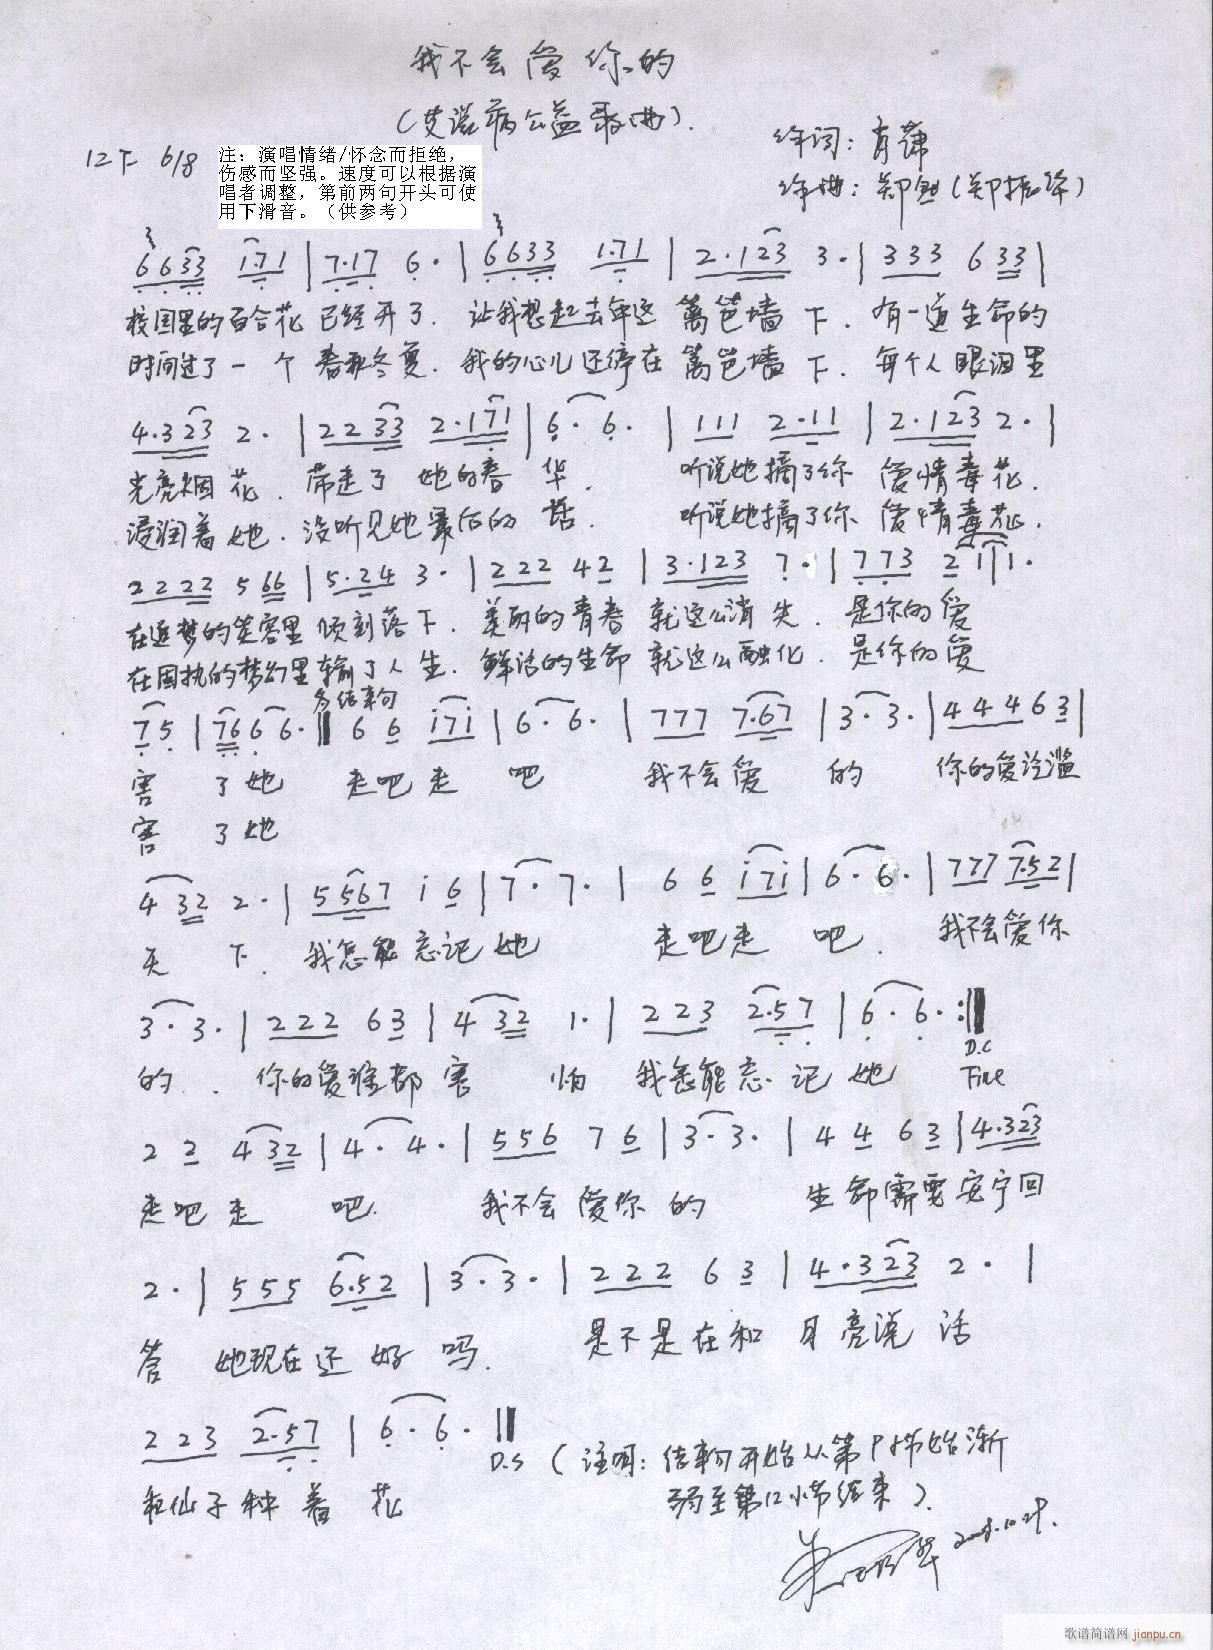 我不会爱你的
(艾滋病公益歌曲).
作词：肖萧
12下 6/8
注：演唱情绪/怀念而拒绝，
伤感而坚强。速度可以根据演
唱者调整，第前两句开头可使
用下滑音。（供参考）
作曲：郑然(郑振华)
6 6 3 3 1·7 1 | 7·1 7 6· | 6 6 3 3 1·7 1 | 2·1 2 3 3· | 3 3 3 6 3 3 |
校园里的百合花 已经开了. 让我想起去年这 篱笆墙 下. 有一道生命的
时间过了一个 春秋冬夏. 我的心儿还停在 篱笆墙 下. 每个人眼泪里
4·3 2 3 2· | 2 2 3 3 2·1 7 1 | 6· 6· | 1 1 1 2·1 1 | 2·1 2 3 2· |
光亮烟花. 带走了 她的春 华. 听说她摘了你 爱情毒花.
浸润着她. 没听见她最后的 话. 听说她摘了你 爱情毒花.
2 2 2 2 5 6 6 | 5·2 4 3· | 2 2 2 4 2 | 3·1 2 3 7· | 7 7 3 2 1 | 1·
在追梦的笑容里 倾刻落下. 美丽的青春 就这么消失. 是你的爱
在固执的梦幻里 输了人生. 鲜活的生命 就这么融化. 是你的爱
务结束句
7 5 | 7 6 6 6· || 6 6 i 7 i | 6· 6· | 7 7 7 7·6 7 | 3· 3· | 4 4 4 6 3 |
害 了她 走吧走 吧 我不会爱 的 你的爱泛滥
害 了她
4 3 2 2· | 5 5 6 7 i 6 | 7· 7· | 6 6 i 7 i | 6· 6· | 7 7 7 7·5 2 |
天 下. 我怎能忘记她 走吧走 吧. 我不会爱你
3· 3· | 2 2 2 6 3 | 4 3 2 1· | 2 2 3 2·5 7 | 6· 6· :||
D.C
的. 你的爱谁都害 怕 我怎能忘记她 Fine
2 2 4 3 2 | 4· 4· | 5 5 6 7 6 | 3· 3· | 4 4 6 3 | 4·3 2 3
走吧走 吧. 我不会爱你的 生命需要安宁回
2· | 5 5 5 6·5 2 | 3· 3· | 2 2 2 6 3 | 4·3 2 3 2· |
答 她现在还好吗. 是不是在和 月亮说 话
2 2 3 2·5 7 | 6· 6· ||
D.S (注明：结束句开始从第 小节始渐
和仙子种着 花
弱至第12小节结束).
歌谱简谱网 jianpu.cn